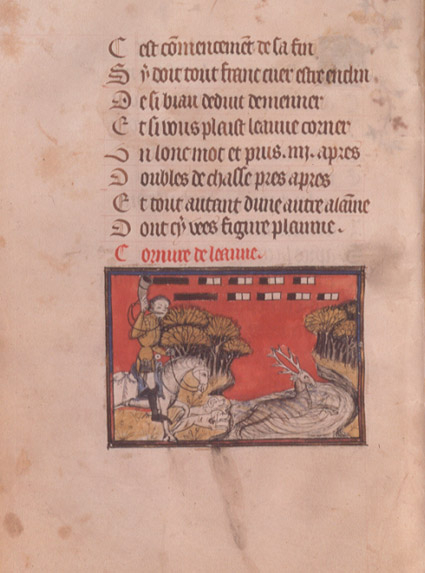 C est cōmencemēt de sa fin
S ỹ doit tout franc cuer estre enclin
D e si biau deduit demener
E t si vous plaist leaune corner
U n lonc mot et puis .iiij. apres
D oubles de chasse pres apres
E t tout autant dune autre alainne
D ont cy vees figure plainne.
C ornure de leaune.